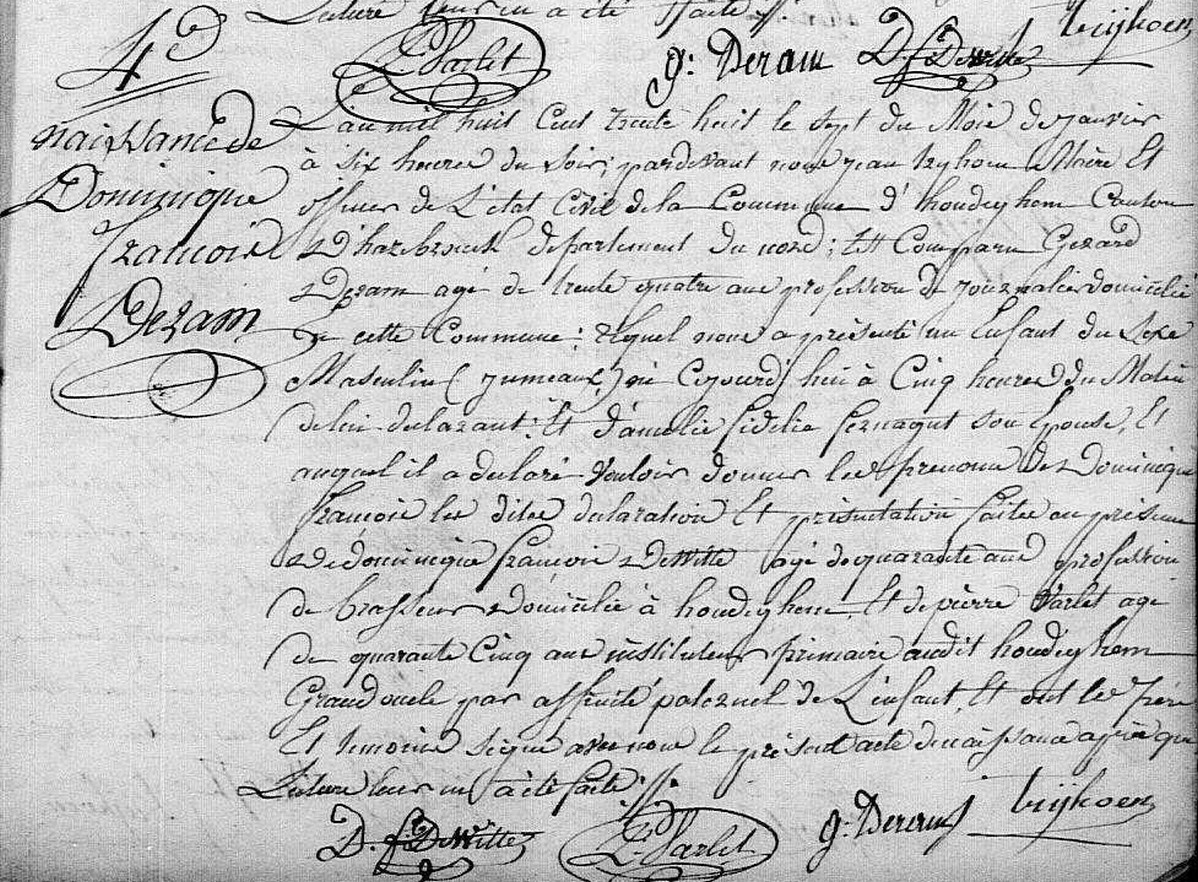 Lecture leur en a été faite
4e
P Varlet g: Deram D. f. DeWitte tryhoen
naissance de
Dominique
françois
Deram
L'an mil huit Cent trente huit le sept du Mois de janvier
à six heures du soir; pardevant nous jean tryhoen Maire Et
officier de L'état Civil de la Commune d'houdeghem Canton
D'hazebrouck departement du nord; Est Comparu Gerard
Deram agé de trente quatre ans profession de journalier domicilié
en cette Commune: Lequel nous a présenté un Enfant du Sexe
Masculin (jumeaux) né Cejourd'hui à Cinq heures du Matin
de lui declarant: Et d'amelie fidelie son Epouse, Et
auquel il a declaré vouloir donner les prenoms De Dominique
françois les dites declaration Et présentation faites en présence
De dominique françois DeWitte agé de quarante ans profession
de brasseur domicilié à houdeghem, Et de pierre Varlet agé
de quarante Cinq ans instituteur primaire audit houdeghem
Grand oncle par affinité paternel de L'enfant, Et ont les père
Et temoins signé avec nous le présent acte de naissance après que
Lecture leur en a été faite
D. f. DeWitte P. Varlet g: Deram tryhoen